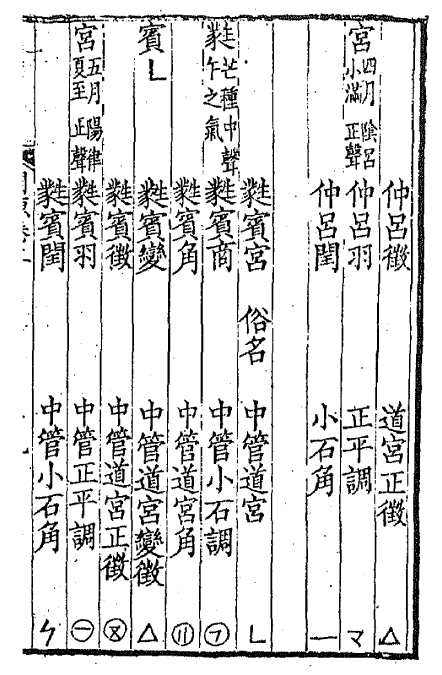 仲呂徵 道宮正徵 △
宮 四月 陰呂 小滿 正聲 仲呂羽 正平調 マ
仲呂閏 小石角 一
蕤賓宮 俗名 中管道宮 ㄴ
蕤 芒種中聲 午之氣 蕤賓商 中管小石調 ㋆
蕤賓角 中管道宮角
賓 ㄴ 蕤賓變 中管道宮變徵 △
蕤賓徵 中管道宮正徵
宮 五月 陽律 夏至 正聲 蕤賓羽 中管正平調 ㊀
蕤賓閏 中管小石角 ㄣ